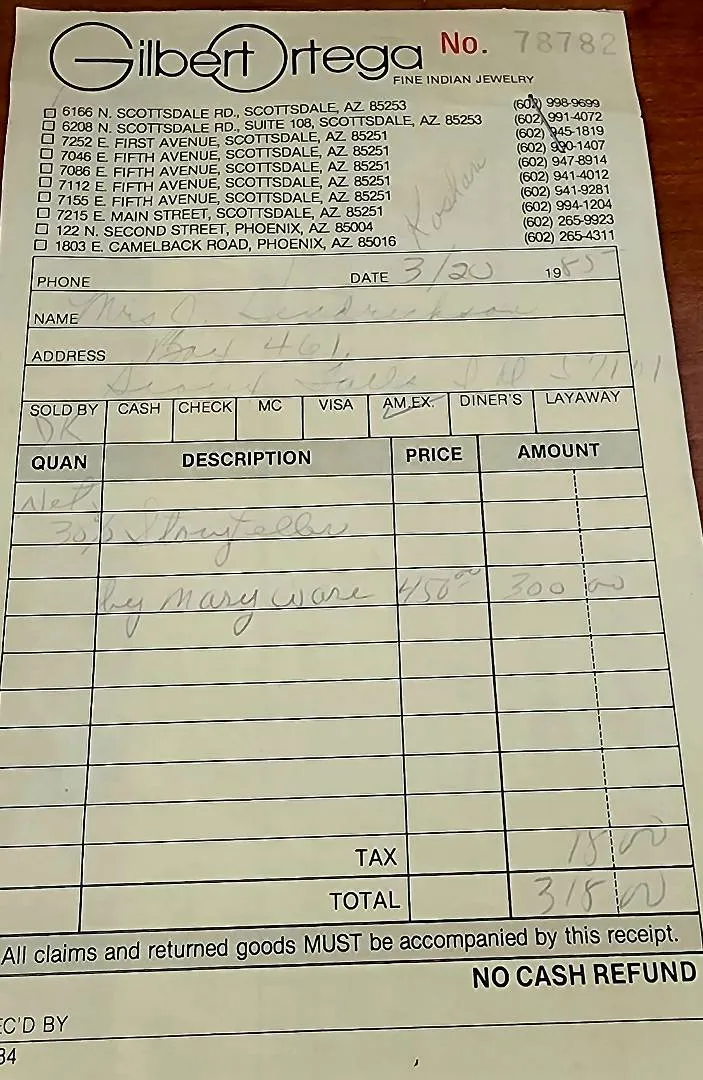 Gilbert Ortega No. 78782
FINE INDIAN JEWELRY
6166 N. SCOTTSDALE RD., SCOTTSDALE, AZ 85253 (602) 998-9699
6208 N. SCOTTSDALE RD., SUITE 108, SCOTTSDALE, AZ 85253 (602) 991-4072
7252 E. FIRST AVENUE, SCOTTSDALE, AZ 85251 (602) 945-1819
7046 E. FIFTH AVENUE, SCOTTSDALE, AZ 85251 (602) 990-1407
7086 E. FIFTH AVENUE, SCOTTSDALE, AZ 85251 (602) 947-8914
7112 E. FIFTH AVENUE, SCOTTSDALE, AZ 85251 (602) 941-4012
7155 E. FIFTH AVENUE, SCOTTSDALE, AZ 85251 (602) 941-9281
7215 E. MAIN STREET, SCOTTSDALE, AZ 85251 (602) 994-1204
122 N. SECOND STREET, PHOENIX, AZ 85004 (602) 265-9923
1803 E. CAMELBACK ROAD, PHOENIX, AZ 85016 (602) 265-4311
PHONE DATE 3/20 1985
NAME Mrs
ADDRESS Box 461
Falls S D 57101
SOLD BY CASH CHECK MC VISA AM.EX. DINER'S LAYAWAY
DK
QUAN DESCRIPTION PRICE AMOUNT
Net
30% Storyteller
by Mary Ware 450.00 300 00
TAX 18 00
TOTAL 318 00
All claims and returned goods MUST be accompanied by this receipt.
NO CASH REFUND
EC'D BY
84